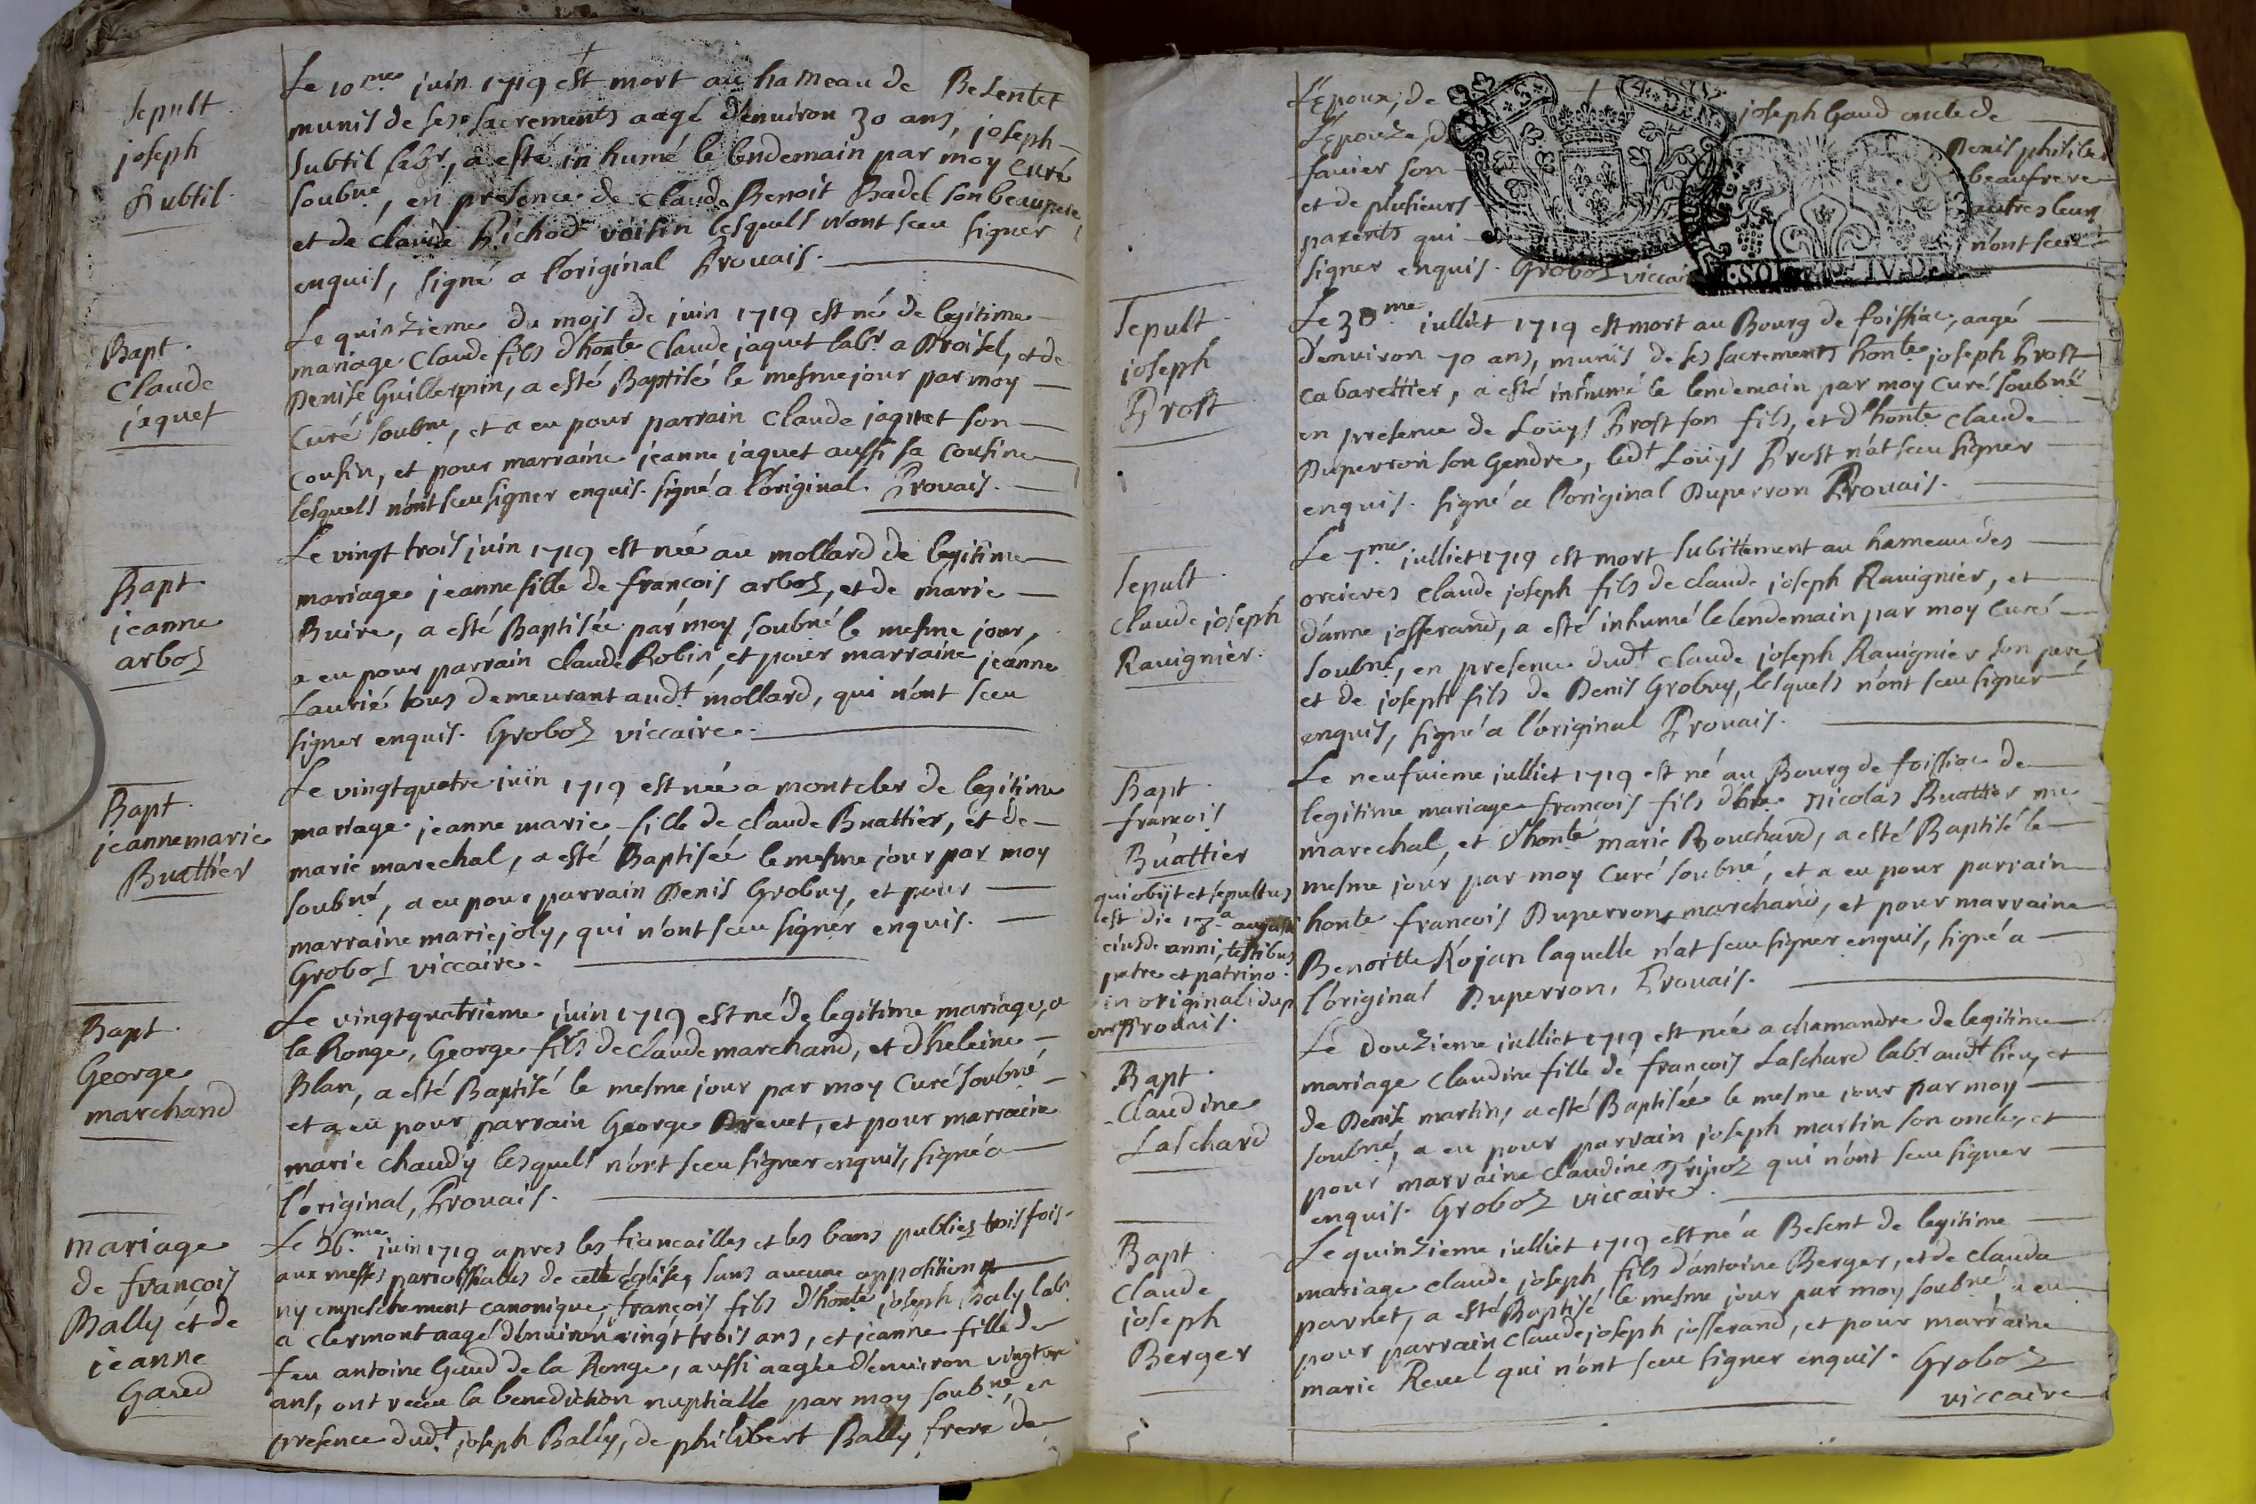 Sepult
joseph
Subtil
Le 10me juin 1719 est mort au hameau de Besentet
munis de ses sacrements aagé d'enuiron 30 ans, joseph
Subtil labr, a esté inhumé le lendemain par moy Curé
soubné, en presence de claude Benoit Badel son beaupere
et de claude Pichod voisin lesquels n'ont sceu signer
enquis, signé a l'original Prouais.
Bapt
Claude
jaquet
Le quinzieme du mois de juin 1719 est né de legitime
mariage Claude fils d'honte Claude jaquet labr a Droisel, et de
Denise Guillermin, a esté Baptisé le mesme jour par moy
Curé soubné, et a eu pour parrain Claude jaquet son
cousin, et pour marraine jeanne jaquet aussi sa cousine
lesquels n'ont sceu signer enquis. signé a l'original. Prouais.
Bapt
jeanne
arboz
Le vingt trois juin 1719 est née au mollard de legitime
mariage jeanne fille de francois arboz, et de marie
Buire, a esté Baptisée par moy soubné le mesme jour,
a eu pour parrain Claude Robin et pour marraine jeanne
faurié tous demeurant audt mollard, qui n'ont sceu
signer enquis. Groboz viccaire.
Bapt
jeanne marie
Buattier
Le vingtquatre juin 1719 est née a montcler de legitime
mariage jeanne marie fille de claude Buattier, et de
marie marechal, a esté Baptisée le mesme jour par moy
soubné, a eu pour parrain Denis Grobuy, et pour
marraine marie joly, qui n'ont sceu signer enquis.
Groboz viccaire.
Bapt
George
marchand
Le vingtquatrieme juin 1719 est né de legitime mariage, a
la Ronge, George fils de Claude marchand, et d'heleine
Blan, a esté Baptisé le mesme jour par moy Curé soubné
et a eu pour parrain George Dreuet, et pour marraine
marie chaudy lesquels n'ont sceu signer enquis, signé a
l'original, Prouais.
mariage
de francois
Bally et de
jeanne
Gaud
Le 26me juin 1719 apres les fiancailles et les bans publiez trois fois
aux messes parroissialles de cette Eglise, sans aucune opposition
ny empeschement canonique, francois fils d'honte joseph Baly labr
a clermont aagé d'enuiron vingt trois ans, et jeanne fille de
feu antoine Gaud de la Ronge, aussi aagée d'enuiron vingt
ans, ont receu la benediction nuptialle par moy soubné, en
presence dudt joseph Bally, de philibert Bally frere de
L'Epoux, de joseph Gaud oncle de
L'Epouze, Denis philibe
fauier son beaufrere
et de plusieurs autres leurs
parents qui n'ont sceu
signer enquis. Groboz viccai
Sepult
joseph
Prost
Le 3me julliet 1719 est mort au Bourg de foissiac, aagé
d'enuiron 70 ans, munis de ses sacrements honte joseph Prost
cabarettier, a esté inhumé le lendemain par moy Curé soubné
en presence de Loüys Prost son fils, et d'honte Claude
Duperron son Gendre, ledt Loüys Prost n'at sceu signer
enquis. signé a l'original Duperron Prouais.
Sepult
Claude joseph
Rauignier
Le 7me julliet 1719 est mort subittement au hameau des
orcieres Claude joseph fils de claude joseph Rauignier, et
d'anne josserand, a esté inhumé le lendemain par moy Curé
soubné, en presence dudt Claude joseph Rauignier son pere
et de joseph fils de Denis Grobuy, lesquels n'ont sceu signer
enquis, signé a l'original Prouais.
Bapt
francois
Buattier
qui obijt et sepultus
est die 18a augusti
eiusde anni, testibus
patre et patrino
in originali dup
err Prouais.
Le neufuieme julliet 1719 est né au Bourg de foissiac de
legitime mariage francois fils d'hte Nicolas Buattier me
marechal, et d'honte marie Bouchard, a esté Baptisé le
mesme jour par moy Curé soubné, et a eu pour parrain
honte francois Duperron marchand, et pour marraine
Benoitte Rojan laquelle n'at sceu signer enquis, signé a
l'original Duperron, Prouais.
Bapt
Claudine
Laschard
Le douzieme julliet 1719 est née a chamandre de legitime
mariage Claudine fille de francois Laschard labr audt lieu, et
de Denise martin, a esté Baptisée le mesme jour par moy
soubné, a eu pour parrain joseph martin son oncle, et
pour marraine Claudine Tripoz qui n'ont sceu signer
enquis. Groboz viccaire.
Bapt
Claude
joseph
Berger
Le quinzieme julliet 1719 est né a Besent de legitime
mariage claude joseph fils d'antoine Berger, et de Clauda
parnet, a esté Baptisé le mesme jour par moy soubné, a eu
pour parrain Claude joseph josserand, et pour marraine
marie Reuel qui n'ont sceu signer enquis. Groboz
viccaire